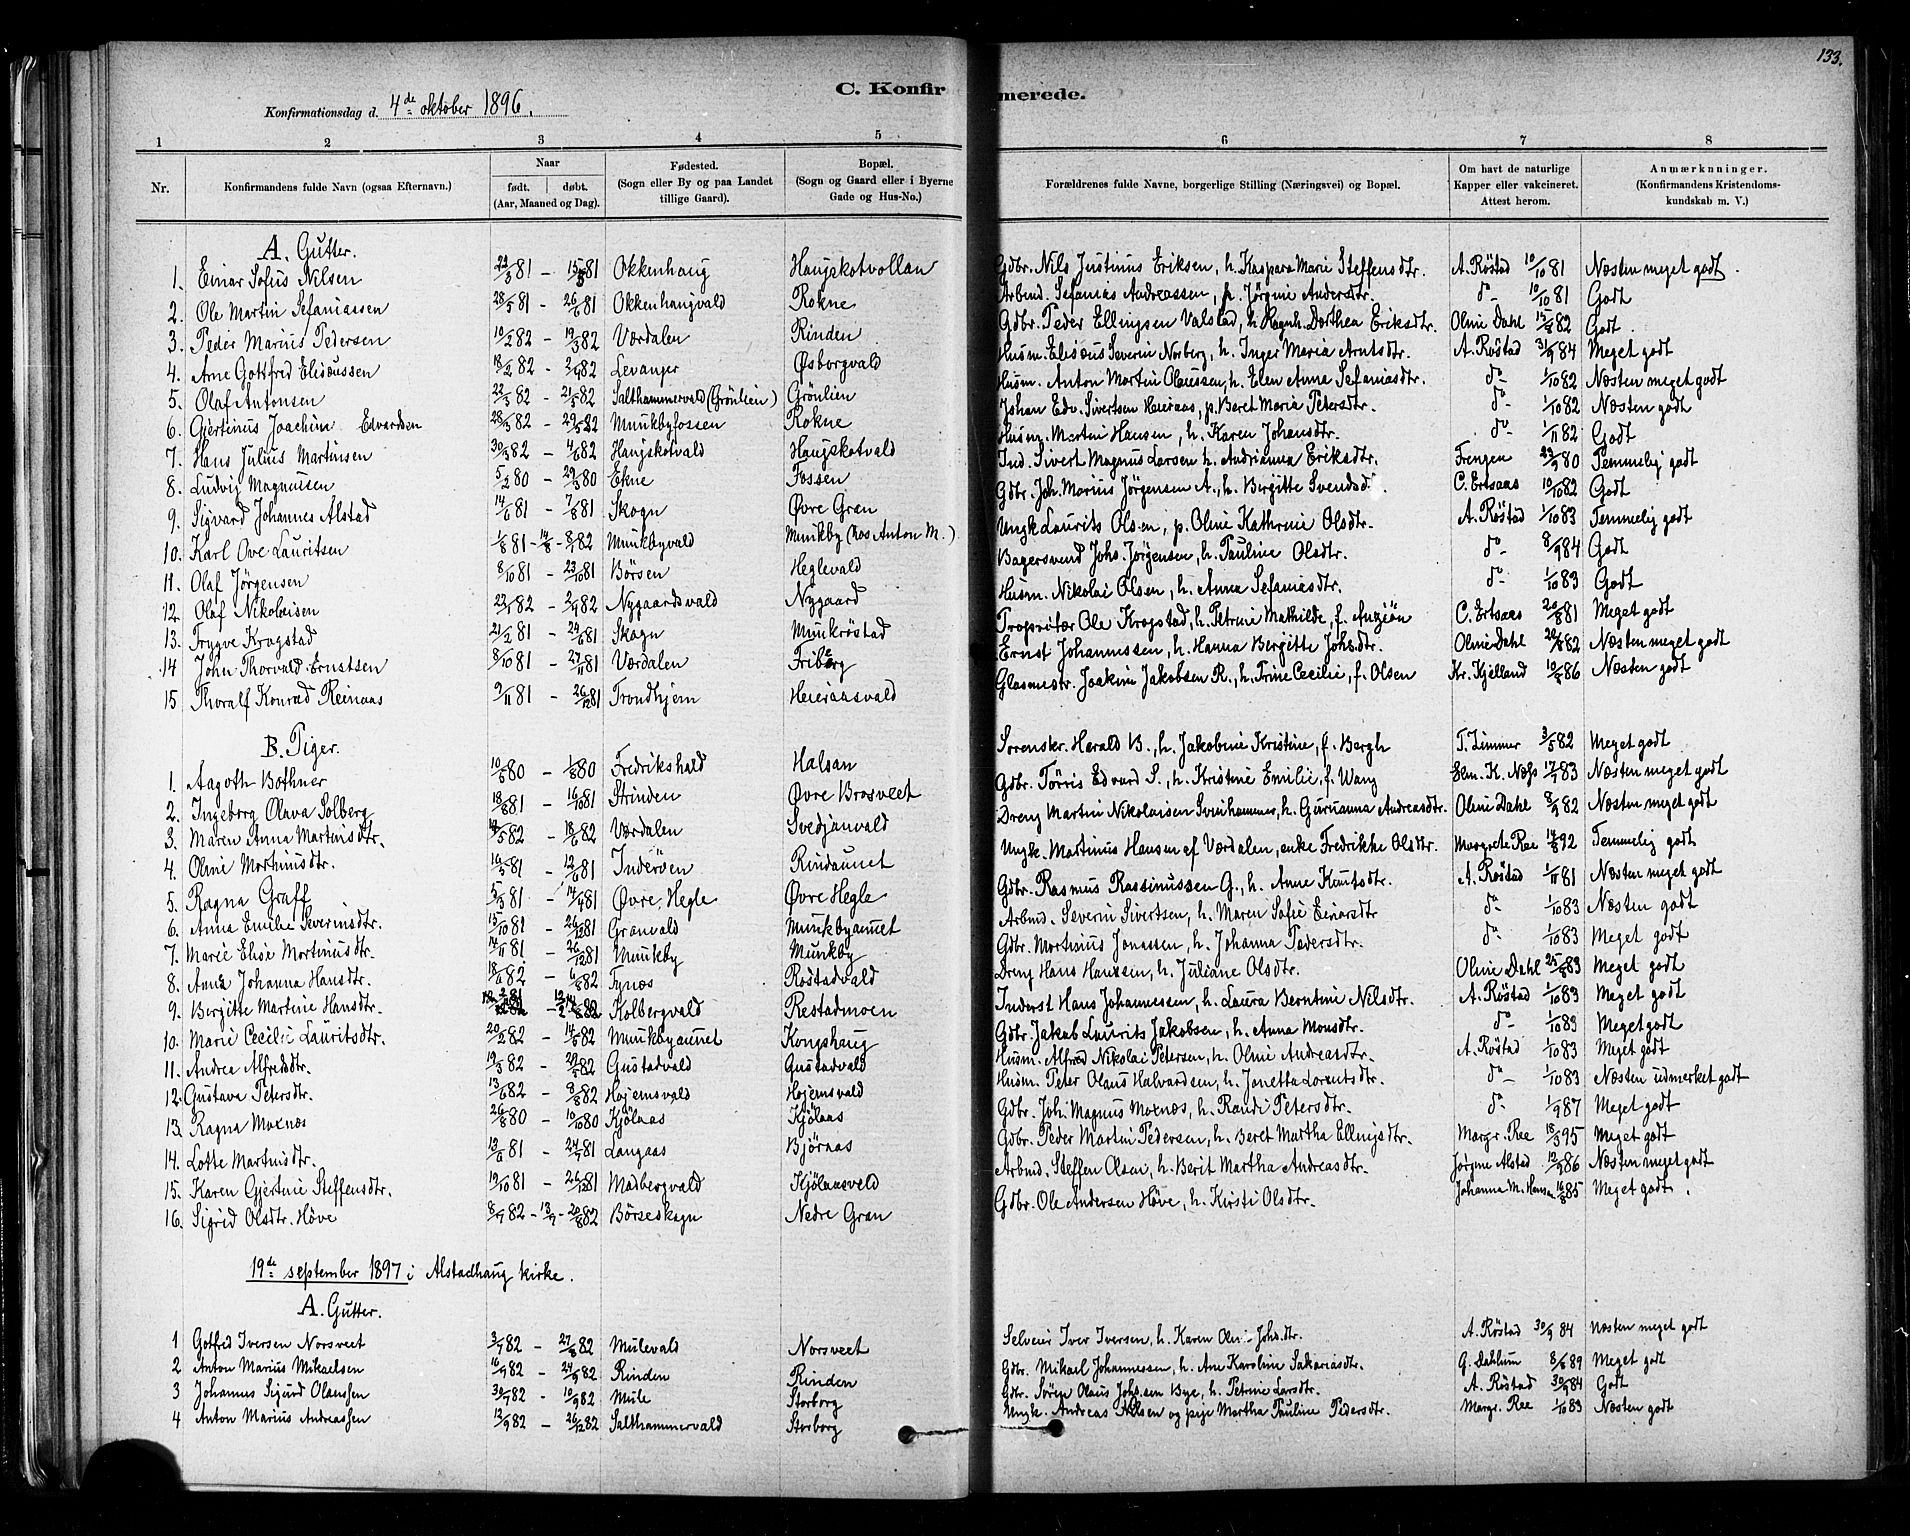 133.
C. Konfirmerede.
Konfirmationsdag d. 4de oktober 1896.
1 2 3 4 5 6 7 8
Nr. | Konfirmandens fulde Navn (ogsaa Efternavn.) | Naar født. døbt. (Aar, Maaned og Dag). | Fødested. (Sogn eller By og paa Landet tillige Gaard). | Bopæl. (Sogn og Gaard eller i Byerne Gade og Hus-No.) | Forældrenes fulde Navne, borgerlige Stilling (Næringsvei) og Bopæl. | Om havt de naturlige Kapper eller vakcineret. Attest herom. | Anmærkninger. (Konfirmandens Kristendomskundskab m. V.)
A. Gutter.
1. Einar Sofus Nilsen 23/3 81 – 15/5 81 Okkenhaug Haugskotvollan Gdbr. Nils Justinus Eriksen, h. Kaspara Marie Steffensdtr. A. Röstad 10/10 81 Næsten meget godt.
2. Ole Martin Sefaniassen 28/5 81 – 26/6 81 Okkenhaugvald Rokne Arbmd. Sefanias Andreassen, h. Jörgine Andersdtr. do 10/10 81 Godt
3. Peder Marius Pedersen 10/2 82 – 19/3 82 Værdalen Rinden Gdbr. Peder Ellingsen Valstad, h. Ragnh. Dorthea Eriksdtr. Oline Dahl 15/8 82 Godt.
4. Arne Gottfred Elisæussen 18/2 82 – 2/4 82 Levanger Øsborgvald Husm. Elisæus Severin Norberg, h. Inger Maria Arntsdtr. A. Röstad 31/9 84 Meget godt
5. Olaf Antonsen 22/3 82 – 21/5 82 Salthammervald (Grönlien) Grönlien Husm. Anton Martin Olaussen, h. Elen Anna Sefaniasdtr. do 1/10 82 Næsten meget godt
6. Gjertinus Joachim Edvardsen 28/3 82 – 29/5 82 Munkbyfossen Rokne Johan Edv. Sivertsen Heieraas, p. Beret Maria Petersdtr. do 1/10 82 Næsten godt
7. Hans Julius Martinsen 30/3 82 – 4/6 82 Haugskotvald Haugskotvald Husm. Martin Hansen, h. Karen Johansdtr. do 1/11 82 Godt
8. Ludvig Magnussen 5/2 80 – 29/3 80 Ekne Fossen Ind. Sivert Magnus Larsen h. Andrianna Eriksdtr. Frengen 23/9 80 Temmelig godt
9. Sigvard Johannes Alstad 14/6 81 – 7/8 81 Skogn Øvre Gran Gdbr. Joh. Marius Jörgensen A., h. Bergitte Svendsd. C. Ertsaas 10/10 82 Godt
10. Karl Ove Lauritsen 1/8 81 – 14/8 – 8/1 82 Munkbyvald Munkby (hos Anton M.) Ungk. Laurits Olsen, p. Oline Kathrine Olsdtr. A. Röstad 1/10 83 Temmelig godt
11. Olaf Jörgensen 8/10 81 – 23/10 81 Börsen Heglevald Bagersvend Johs. Jörgensen, h. Pauline Olsdtr. do 8/9 84 Godt
12. Olaf Nikolaisen 23/7 82 – 2/9 82 Nygaardsvald Nygaard Husm. Nikolai Olsen, h. Anna Sefaniasdtr. do 1/10 83 Godt
13. Trygve Krogstad 21/2 81 – 24/4 81 Skogn Munkröstad Proprietær Ole Krogstad, h. Petrine Mathilde, f. Anzjön C. Ertsaas 20/8 81 Meget godt
14 John Thorvald Ernstsen 8/10 81 – 27/11 81 Værdalen Friborg Ernst Johannessen, h. Hanna Bergitte Johsdtr. Oline Dahl 20/8 82 Næsten meget godt
15 Thoralf Konrad Reinaas 9/11 81 – 26/12 81 Trondhjem Heieraasvald Glasmstr. Joakim Jakobsen R., h. Trine Cecilie, f. Olsen Kr. Kjelland 10/5 86 Næsten godt
B. Piger.
1. Aagoth Bothner 10/5 80 – 1/8 80 Fredrikshald Halsan Sorenskr. Harald B., h. Jakobine Kristine, f. Bergh T. Limmer 3/5 82 Meget godt
2. Ingeborg Olava Solberg 18/8 81 – 16/10 81 Strinden Øvre Brosveet Gdbr. Törris Edvard S., h. Kristine Emilie, f. Wang Elen K. Næss 17/9 83 Næsten meget godt
3. Maren Anna Martinsdtr. 14/5 82 – 18/6 82 Værdalen Svedjanvald Dreng Martin Nikolaisen Sveinhammer, h. Gurianna Andreasdtr. Oline Dahl 8/9 82 Næsten meget godt
4. Oline Martinusdtr. 16/3 81 – 12/6 81 Inderöen Rindaunet Ungk. Martinus Hansen af Værdalen, enke Fredrikke Olsdtr. Margrete Ree 14/8 92 Temmelig godt
5. Ragna Graff 5/3 81 – 14/4 81 Øvre Hegle Øvre Hegle Gdbr. Rasmus Rassinussen G., h. Anne Knutsdtr. A. Röstad 1/11 81 Næsten meget godt
6. Anna Emilie Severinsdtr. 15/10 81 – 26/12 81 Granvald Munkbyaunet Arbmd. Severin Sivertsen, h. Maren Sofie Einarsdtr do 1/10 83 Næsten godt
7. Marie Elise Mortinusdtr. 14/11 81 – 26/12 81 Munkby Munkby Gdbr. Mortinius Jonassen, h. Johanna Pedersdtr. do 1/10 83 Meget godt
8. Anna Johanna Hansdtr. 18/6 82 – 6/8 82 Tynæs Rostadvald Dreng Hans Hanssen, h. Juliane Olsdtr. Oline Dahl 25/8 83 Meget godt
9. Bergitte Martine Hansdtr. Kolbergvald Restadmoen Inderst Hans Johannessen, h. Laura Berntine Nilsdtr. A. Röstad 1/10 83 Meget godt
10. Marie Cecilie Lauritsdtr. 20/2 82 – 14/5 82 Munkbyaunet Kongshaug Gdbr. Jakob Laurits Jakobsen, h. Anna Monsdtr. do 1/10 83 Meget godt
11. Andrea Alfredsdtr. 19/3 82 – 20/5 82 Gustadvald Gustadvald Husm. Alfred Nikolai Petersen, h. Oline Andreasdtr. A. Röstad 1/10 83 Meget godt
12. Gustava Petersdtr. 13/6 82 – 8/8 82 Hojemsvald Hojemsvald Husm. Peter Olaus Halvardsen, h. Jonetta Lorentsdtr. do 1/10 83 Næsten udmerket godt
13. Ragna Moxnæs 26/8 80 – 10/10 80 Kjölaas Kjölaas Gdbr. Joh. Magnus Moxnæs, h. Randi Petersdtr. do 1/9 87 Meget godt
14. Lotte Martinsdtr. 13/6 81 – 24/7 81 Langaas Bjørnas Gdbr. Peder Martin Pedersen, h. Beret Martha Ellingsdtr. Margr. Ree 18/3 95 Meget godt
15. Karen Gjertine Steffensdtr. 19/10 81 – 26/12 81 Madbergvald Kjölaasveld Arbmd. Steffen Olsen, h. Berit Martha Andreasdtr. Jörgine Alstad 12/9 86 Næsten meget godt
16. Sigrid Olsdtr. Höve 8/7 82 – 13/7 – 20/8 82 Börseskogn Nedre Gran Gdbr. Ole Andersen Höve, h. Kirsti Olsdtr. Johanna M. Hansen 16/8 85 Meget godt.
19de september 1897 i Alstadhaug kirke.
A. Gutter.
1 Gotfred Iversen Norsveet 3/7 82 – 27/8 82 Mulevald Norsveet Selveier Iver Iversen, h. Karen Oln. Johs.dtr. A. Röstad 30/9 84 Næsten meget godt
2 Anton Marius Mikaelsen 16/7 82 – 24/9 82 Rinden Rinden Gdbr. Mikael Johannessen, h. Ane Karoline Sakariasdtr. G. Dahlum 8/6 89 Meget godt
3 Johannes Sigurd Olaussen 30/7 82 – 10/9 82 Mule Storborg Gdbr. Sören Olaus Johs.sen Bye, h. Petrine Larsdtr. A. Röstad 30/9 84 Godt
4 Anton Marius Andreassen 12/9 82 – 26/12 82 Salthammervald Storborg Ungk. Andreas Nilsen og pige Martha Pauline Pedersdtr. Margr. Ree 1/10 83 Næsten godt